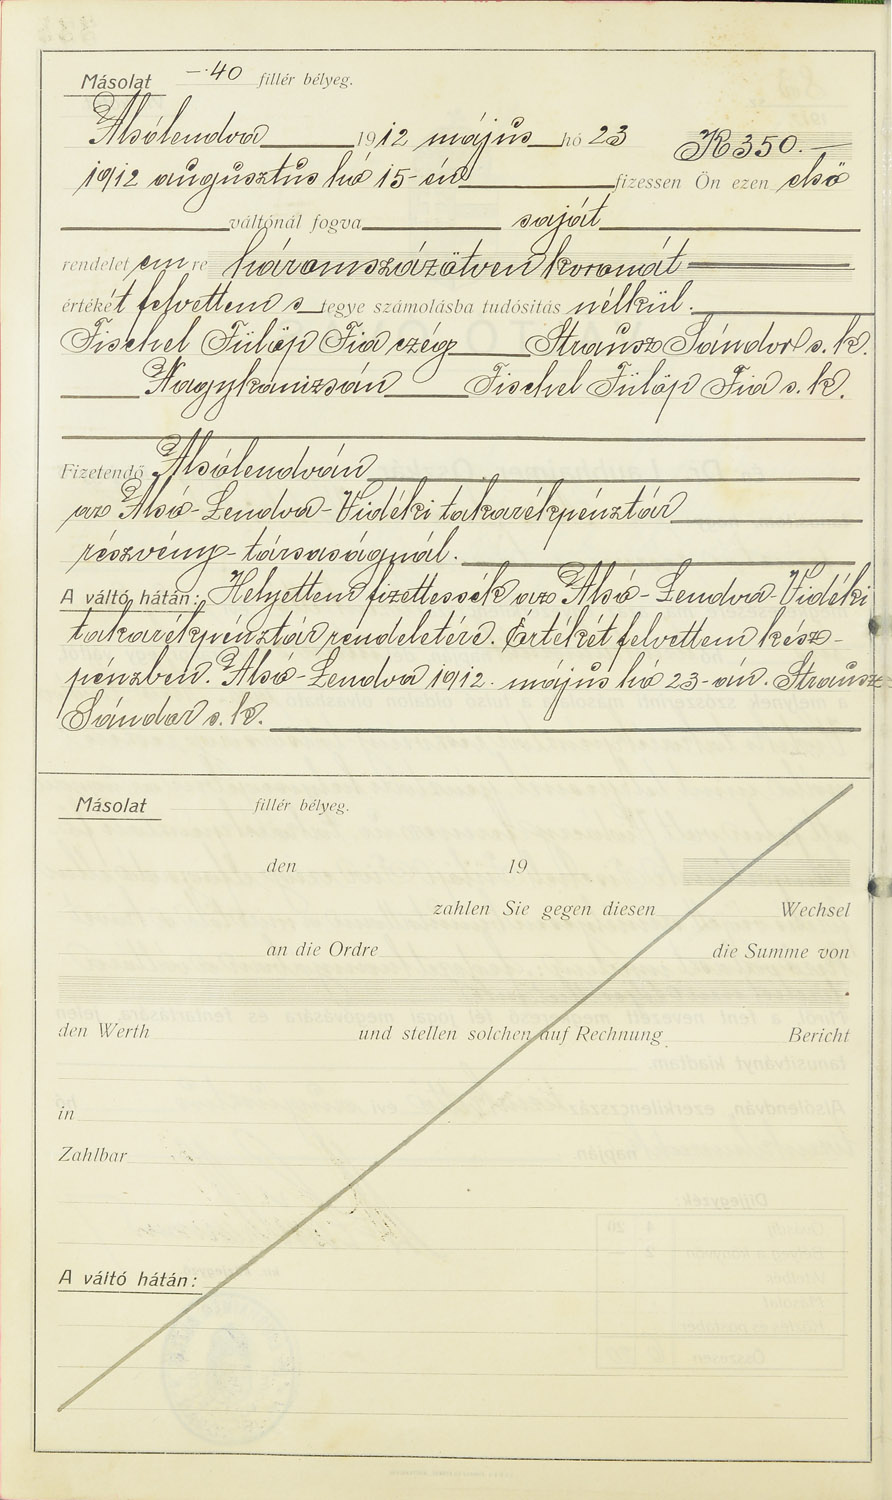 Másolat —·40 fillér bélyeg.
Alsólendva 1912 május hó 23 K 350.—
1912 augusztus hó 15-én fizessen Ön ezen első
váltónál fogva saját
rendelet em re háromszázötven koronát
értékét felvettem s tegye számolásba tudósitás nélkül.
Fischel Fülöp Fia czég Strausz Sándor s. k.
Nagykanizsán Fischel Fülöp Fia s. k.
Fizetendő Alsólendván
az Alsó-Lendva-Vidéki takarékpénztár
részvény-társaságnál.
A váltó hátán: Helyettem fizettessék az Alsó-Lendva-Vidéki
takarékpénztár rendeletére. Értékét felvettem kész-
pénzben. Alsó-Lendva 1912. május hó 23-án. Strausz
Sándor s. k.
Másolat fillér bélyeg.
den 19
zahlen Sie gegen diesen Wechsel
an die Ordre die Summe von
den Werth und stellen solchen auf Rechnung Bericht
in
Zahlbar
A váltó hátán: